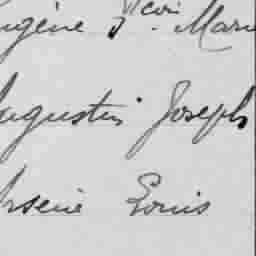 ugène J. Marie
ugustin Joseph
rsène Louis